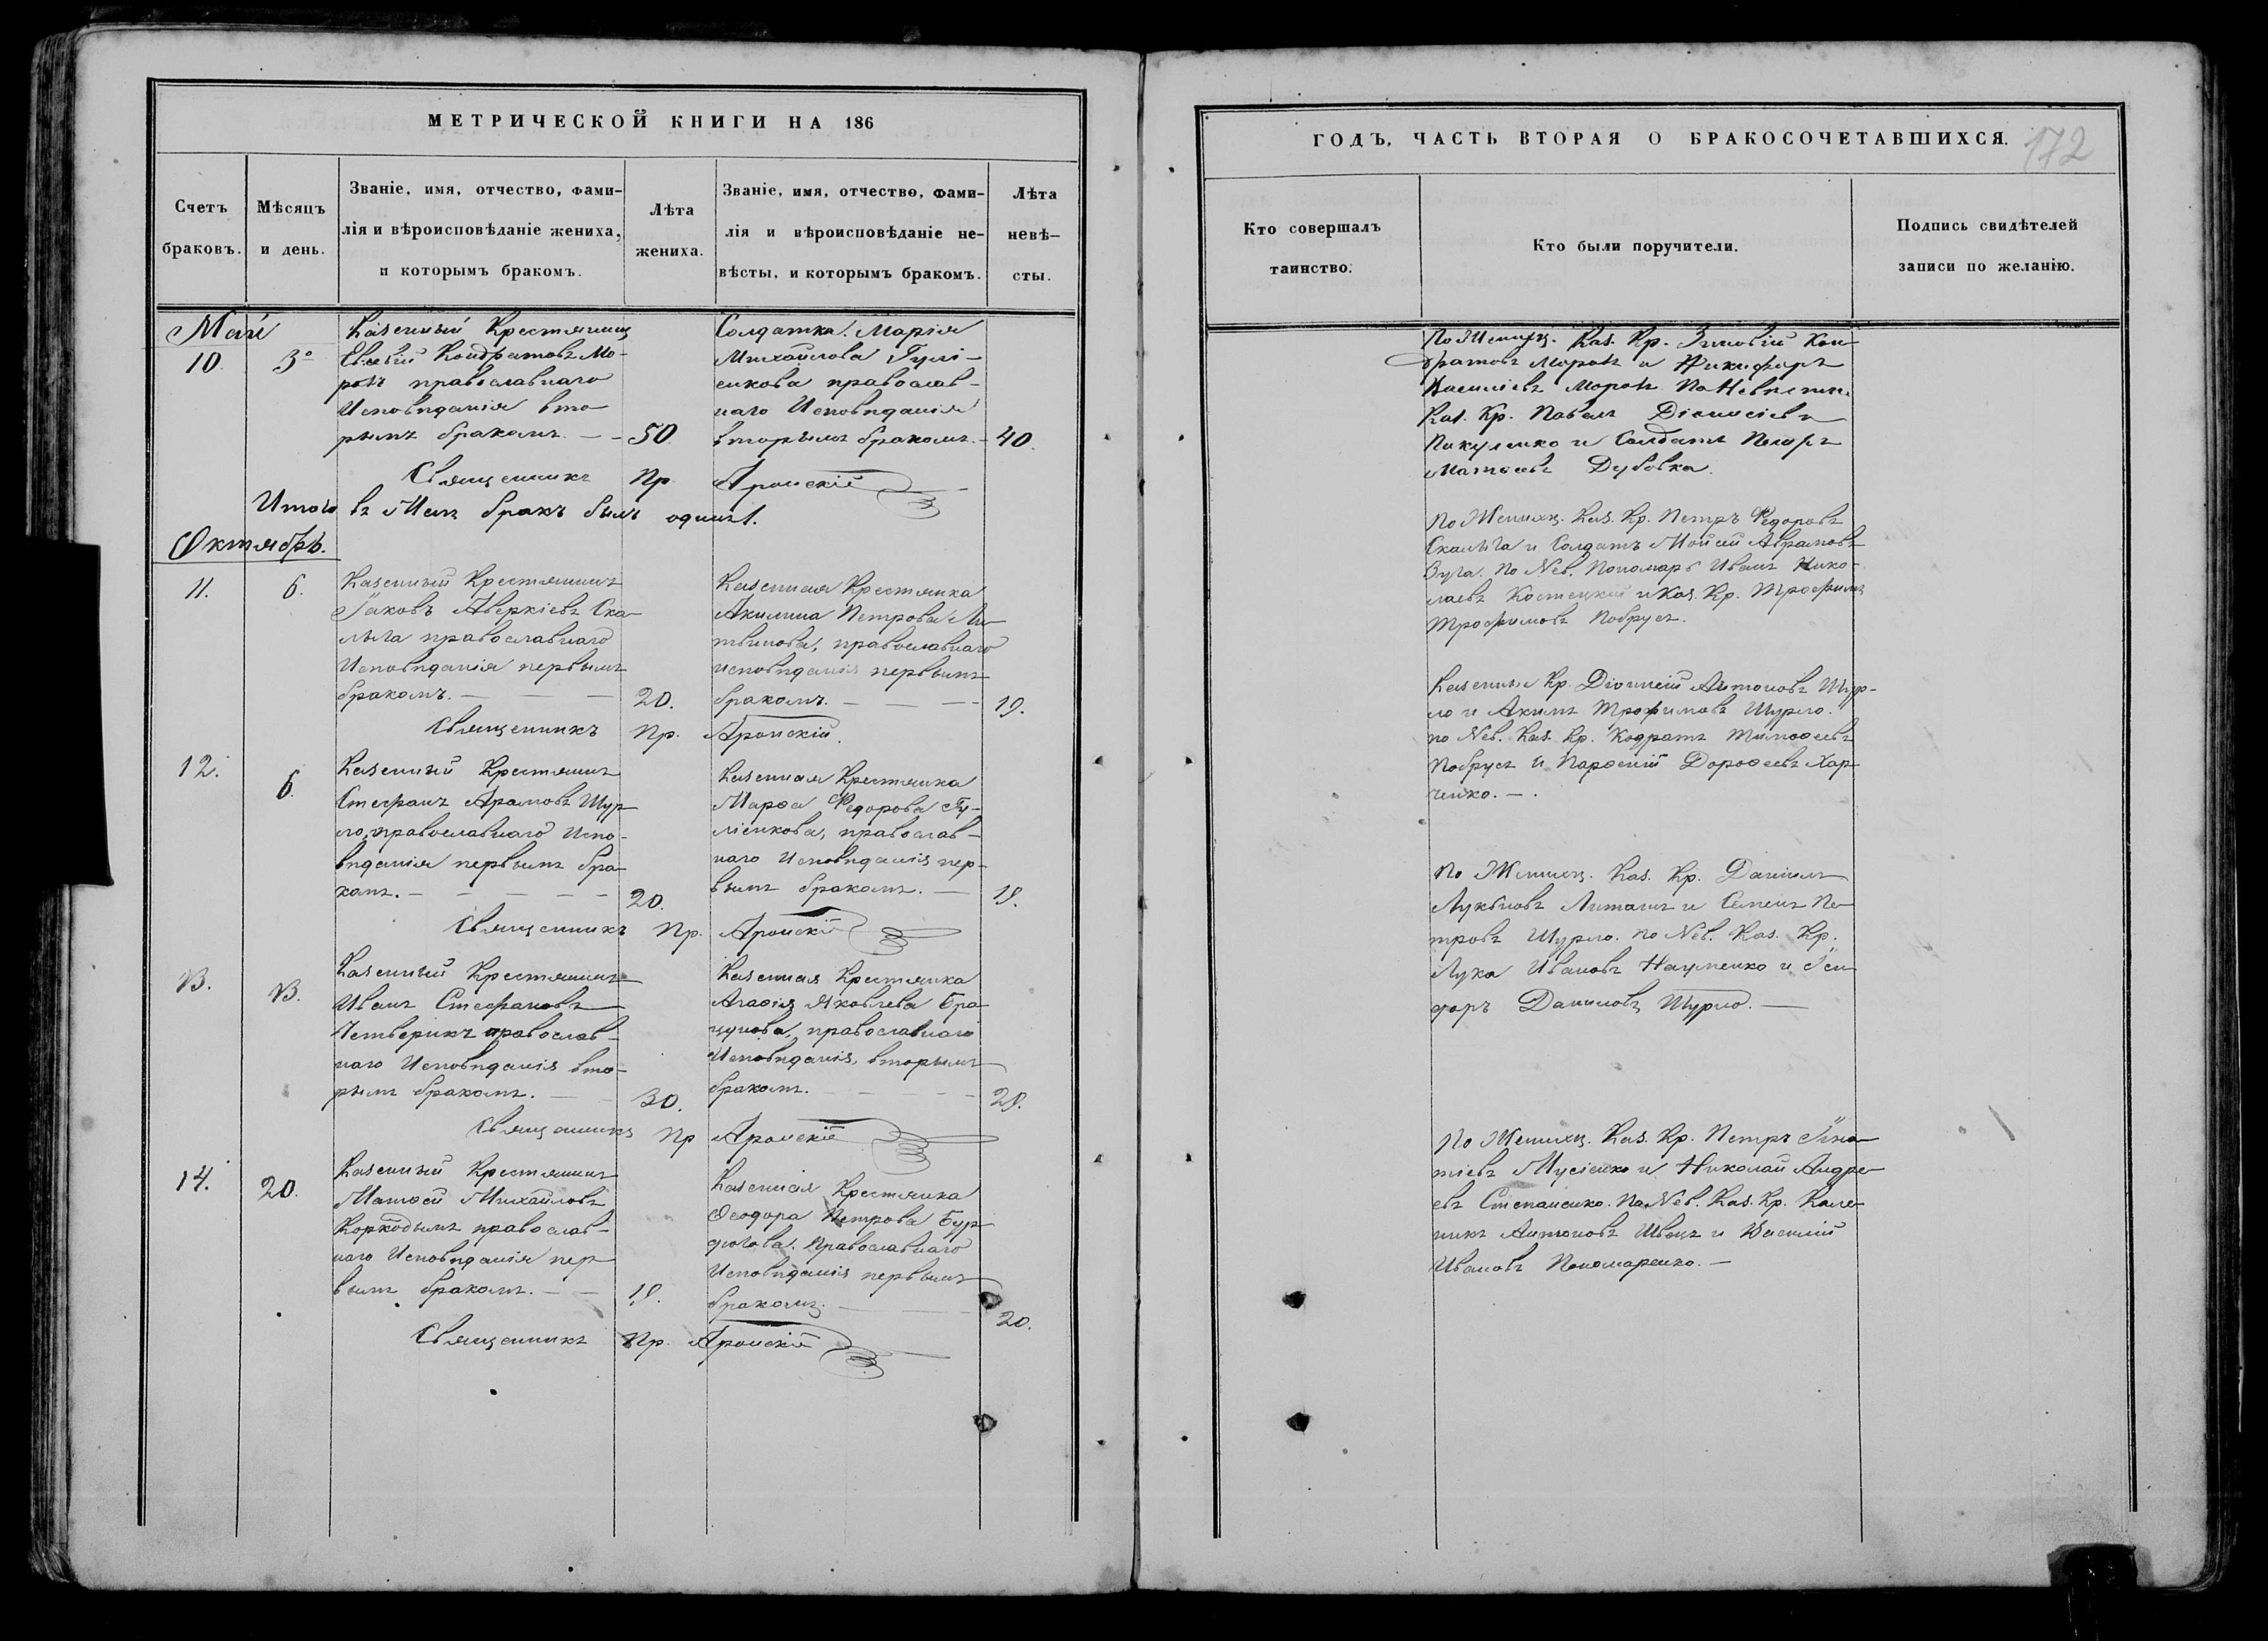 МЕТРИЧЕСКОЙ КНИГИ НА 186
Счетъ браковъ.
Мѣсяцъ и день.
Званіе, имя, отчество, фами-
лія и вѣроисповѣданіе жениха,
и которымъ бракомъ.
Лѣта жениха.
Званіе, имя, отчество, фами-
лія и вѣроисповѣданіе не-
вѣсты, и которымъ бракомъ.
Лѣта невѣ-
сты.
Май
10. 3º
Казенный Крестянинъ
Кондратовъ Мо-
розъ православнаго
Исповѣданія вто-
рымъ бракомъ. — 50.
Солдатка Марія
Михайлова Гулі-
енкова православ-
наго Исповѣданія
вторымъ бракомъ. — 40.
Священникъ Пр. Аронскій
Итого въ Маѣ бракъ былъ одинъ 1.
Октябрь.
11. 6.
Казенный Крестянинъ
Іаковъ Аверкіевъ Ска-
лыга православнаго
Исповѣданія первымъ
бракомъ. — — — 20.
Казенная Крестянка
Акилина Петрова Ли-
твинова, православнаго
исповѣданія первымъ
бракомъ. — — — 19.
Священникъ Пр. Аронскій.
12. 6.
Казенный Крестянинъ
Стефанъ Арамовъ Шур-
ло, православнаго Испо-
вѣданія первымъ бра-
комъ. — — — — 20.
Казенная Крестянка
Марѳа Федорова Гу-
ліенкова, православ-
наго Исповѣданія пер-
вымъ бракомъ. — 19.
Священникъ Пр. Аронскій
13. 13.
Казенный Крестянинъ
Иванъ Стефановъ
Четверикъ православ-
наго Исповѣданія вто-
рымъ бракомъ. — 30.
Казенная Крестянка
Агаѳія Яковлева Бра-
цунова, православнаго
Исповѣданія, вторымъ
бракомъ. — — 29.
Священникъ Пр Аронскій
14. 20.
Казенный Крестянинъ
Матѳей Михайловъ
Коркодымъ православ-
наго Исповѣданія пер-
вымъ бракомъ. — — 19.
Казенная Крестянка
Ѳеодора Петрова Бур-
дюгова. Православнаго
Исповѣданія первымъ
бракомъ. — — 20.
Священникъ Пр. Аронскій
ГОДЪ, ЧАСТЬ ВТОРАЯ О БРАКОСОЧЕТАВШИХСЯ.
172
Кто совершалъ таинство.
Кто были поручители.
Подпись свидѣтелей
записи по желанію.
По Женихѣ. Каз. Кр. Зиновій Кон-
дратовъ Морозъ и Никифоръ
Василіевъ Морозъ По Невѣстѣ
Каз. Кр. Павелъ Діонисіевъ
Пикуленко и Солдатъ Петръ
Матѳеевъ Дубовка.
По Женихѣ. Каз. Кр. Петръ Федоровъ
Скалыга и Солдатъ Мойсей Аврамовъ
Зуга. По Нев. Пономарь Иванъ Нико-
лаевъ Костецкій и Каз. Кр. Трофимъ
Трофимовъ Побрусъ.
Казенный Кр. Діонисій Антоновъ Шур-
ло и Акимъ Трофимовъ Шурло.
по Нев. Каз. Кр. Кодратъ Тимоѳеевъ
Побрусъ и Парѳеній Дороѳеевъ Хар-
ченко. —
По Женихѣ. Каз. Кр. Даніилъ
Лукьяновъ Литашъ и Семенъ Пе-
тровъ Шурло. по Нев. Каз. Кр.
Лука Ивановъ Науменко и Іси-
доръ Даниловъ Шурло. —
По Женихѣ. Каз. Кр. Петръ Игна-
тіевъ Мусіенко и Николай Андре-
евъ Степаненко. По Нев. Каз. Кр. Кале-
никъ Антоновъ Швецъ и Василій
Ивановъ Пономаренко. —